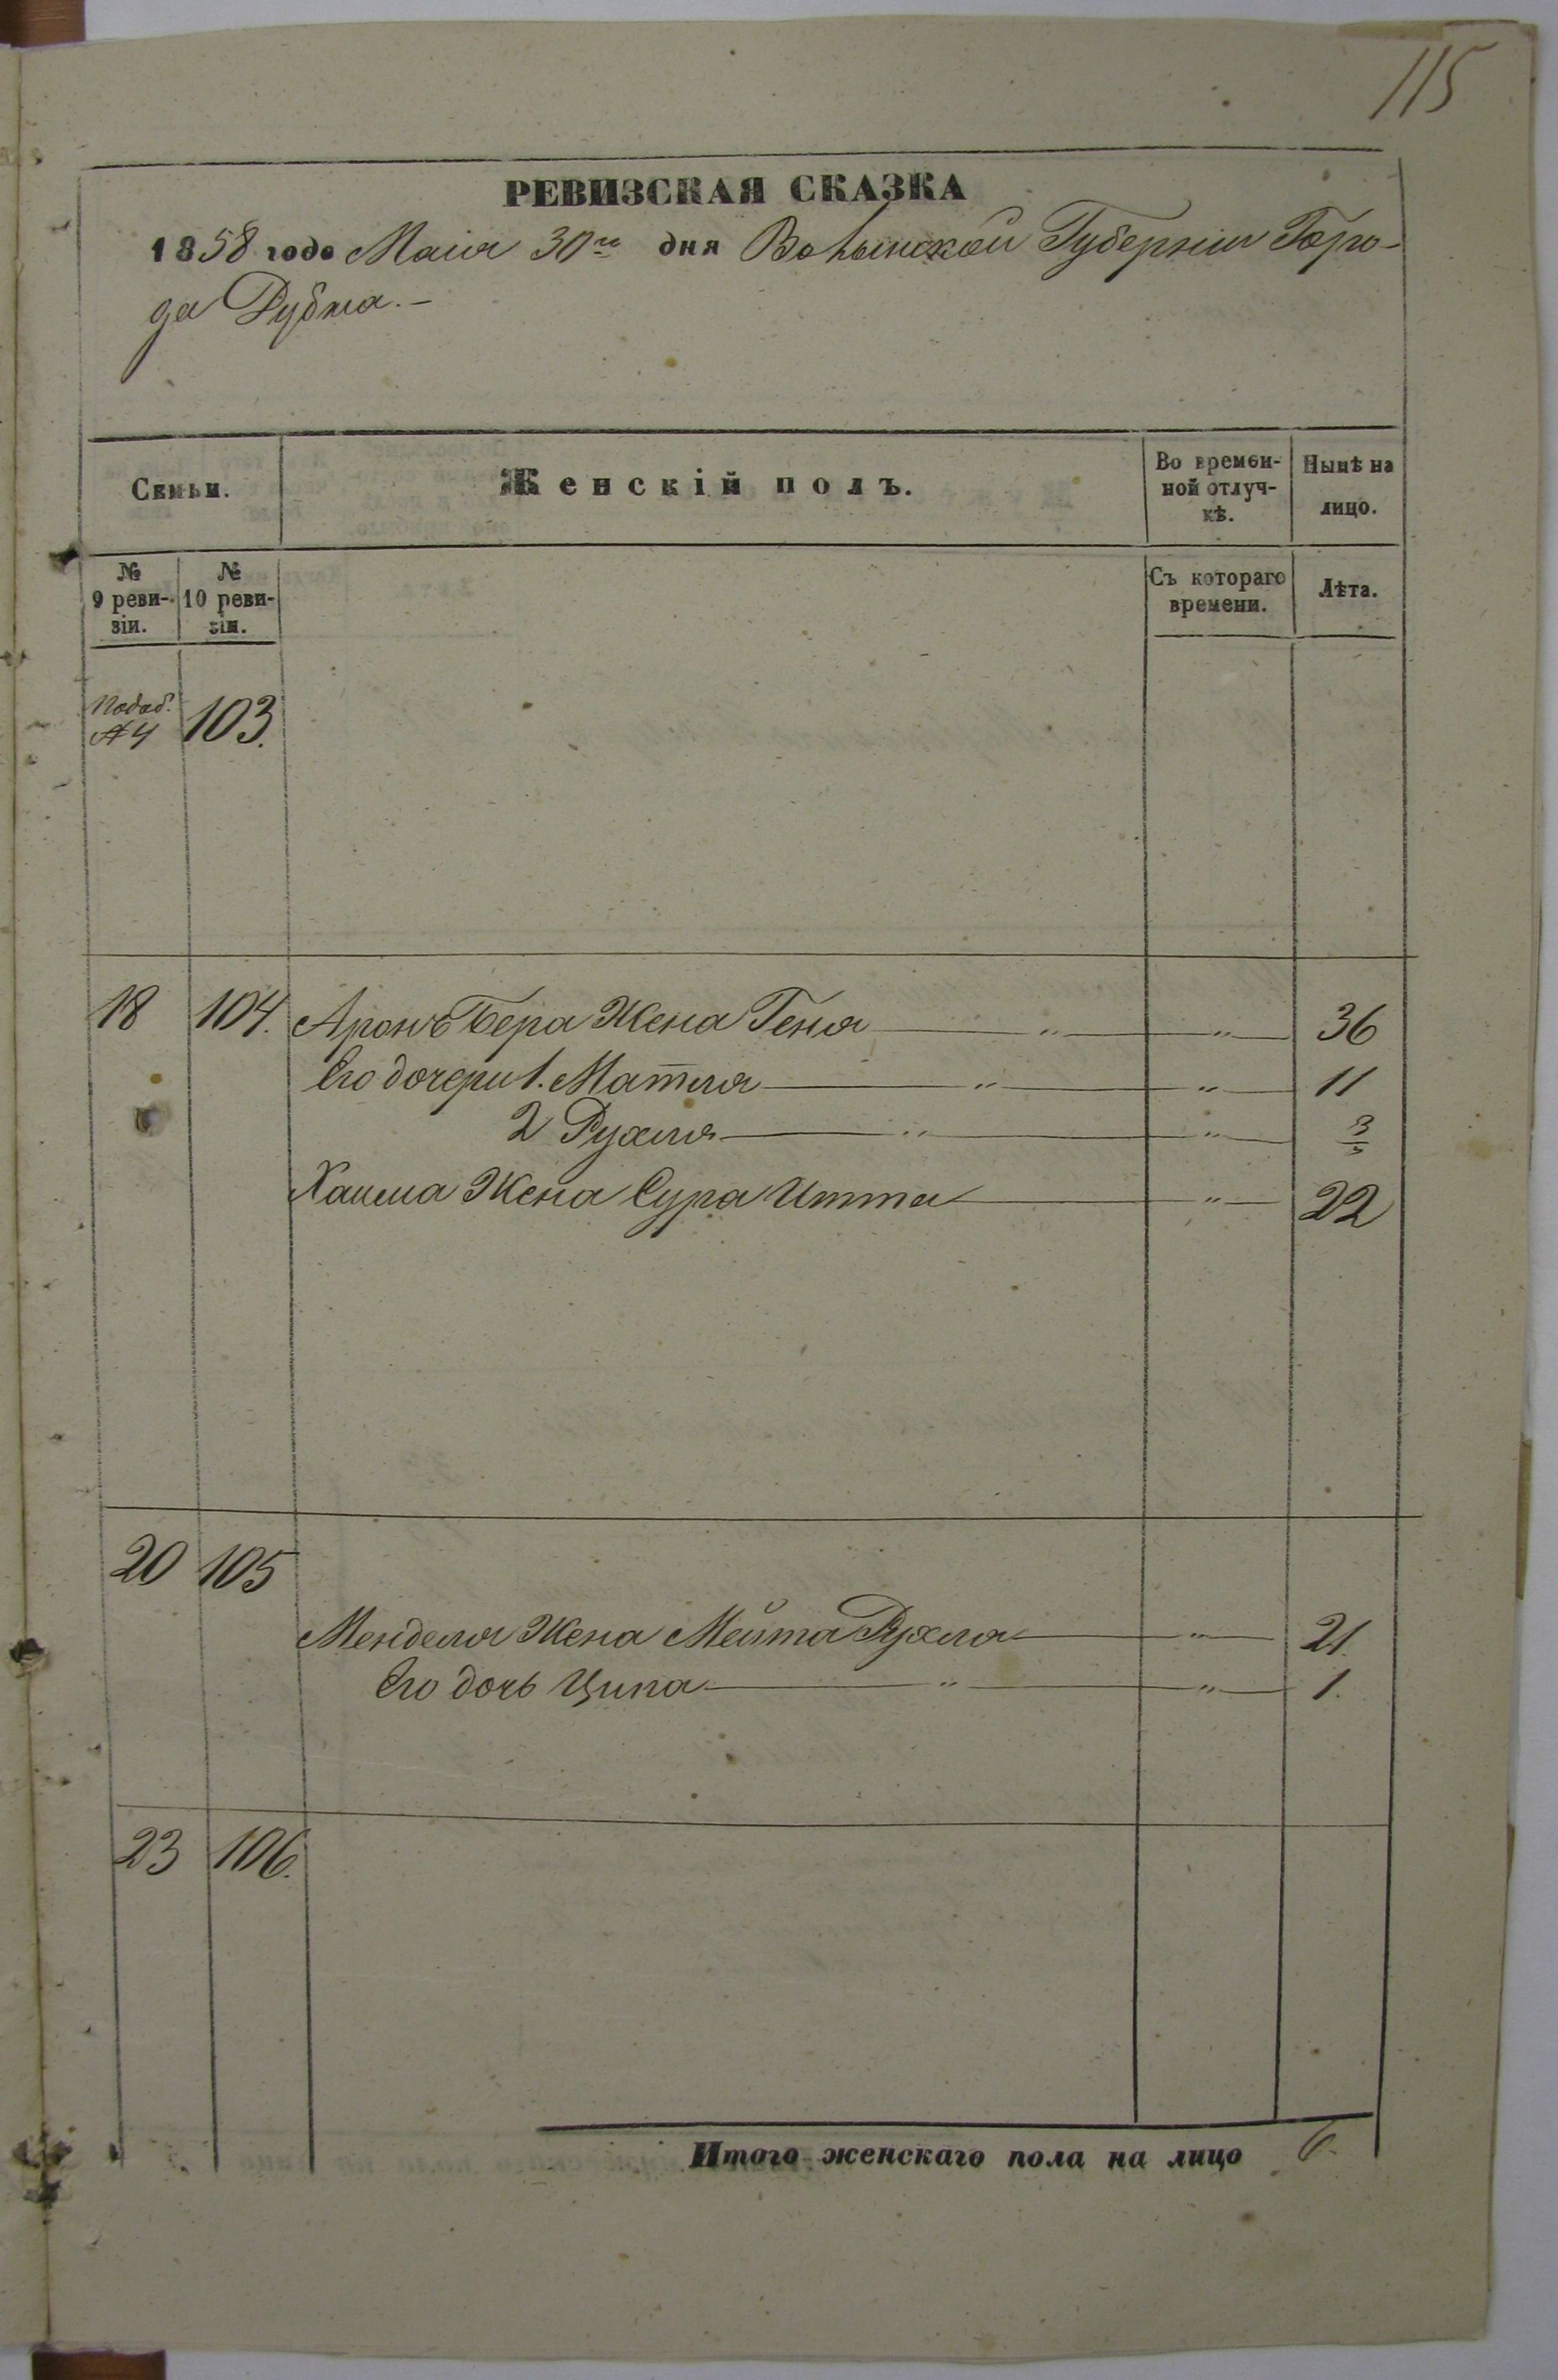 115
РЕВИЗСКАЯ СКАЗКА
1858 года Маия 30го дня Волынской Губернiи Горо-
да Дубна.-
Семьи.
Женскiй полъ.
Во времен-
ной отлуч-
кѣ.
Нынѣ на
лицо.
№
9 реви-
зiи.
№
10 реви-
зiи.
Съ котораго
времени.
Лѣта.
103.
№ 4
18 104. Аронъ Бера Жена Геня " " 36
Его дочери 1. Матля " " 11
2 Рухля " " 3
Хаима Жена Сура Итта " 22
20 105
Менделя Жена Мейта Рухля " 21.
Его дочь Ципа " " 1.
23 106.
Итого женскаго пола на лицо 6.